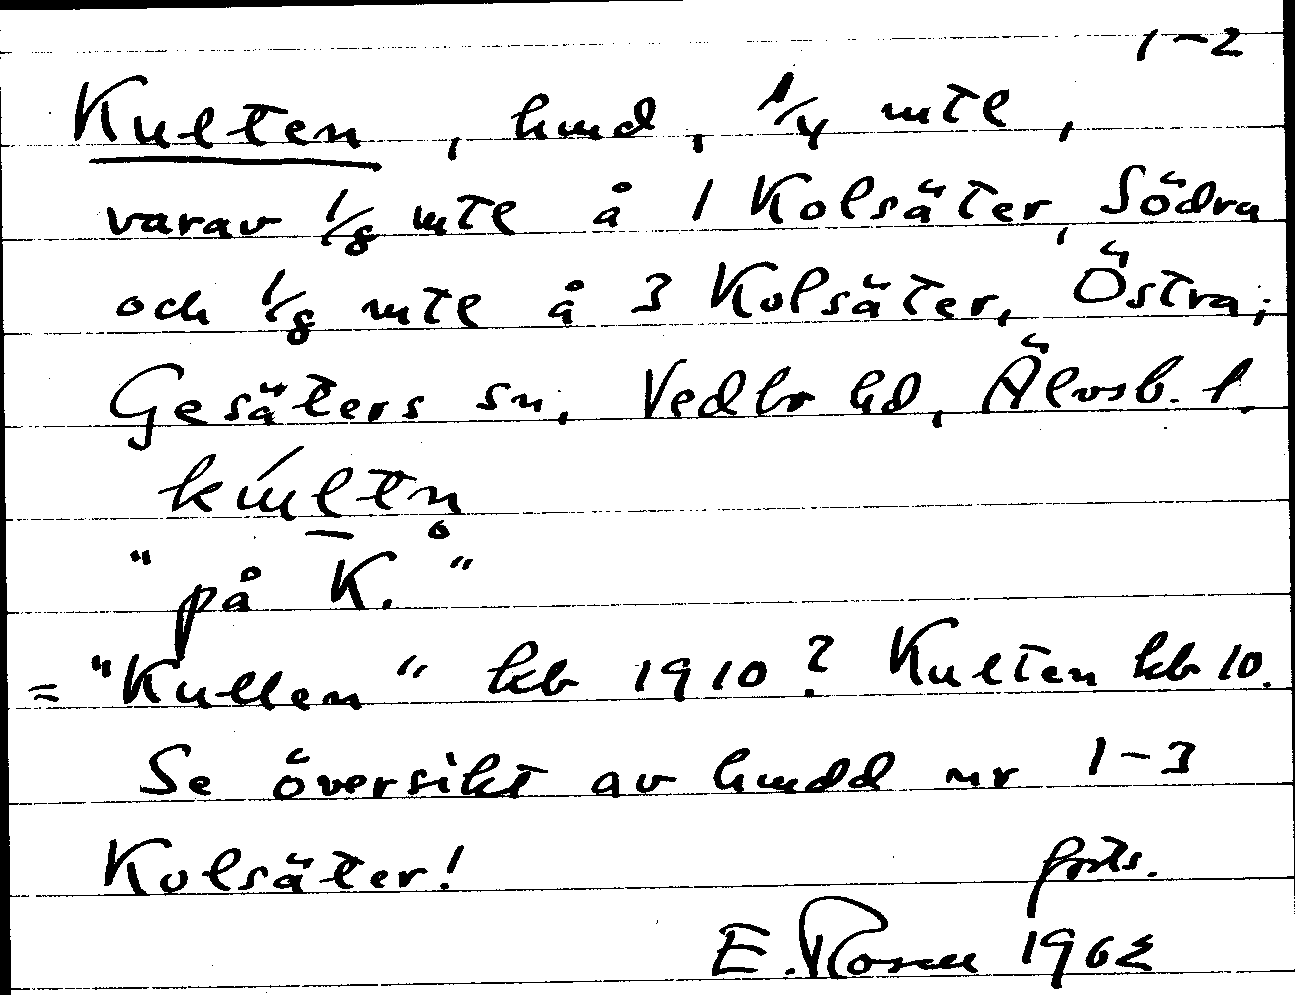 1-2
Kulten, hmd, 1/4 mtl,
varav 1/8 mtl å 1 Kolsäter, Södra
och 1/8 mtl å 3 Kolsäter, Östra;
Gesäters sn, Vedbo hd, Älvsb. l.
"på K."
= "Kullen" kb 1910? Kulten kb 10.
Se översikt av hmdd nr 1-3
Kolsäter!
forts.
E. Rosell 1962